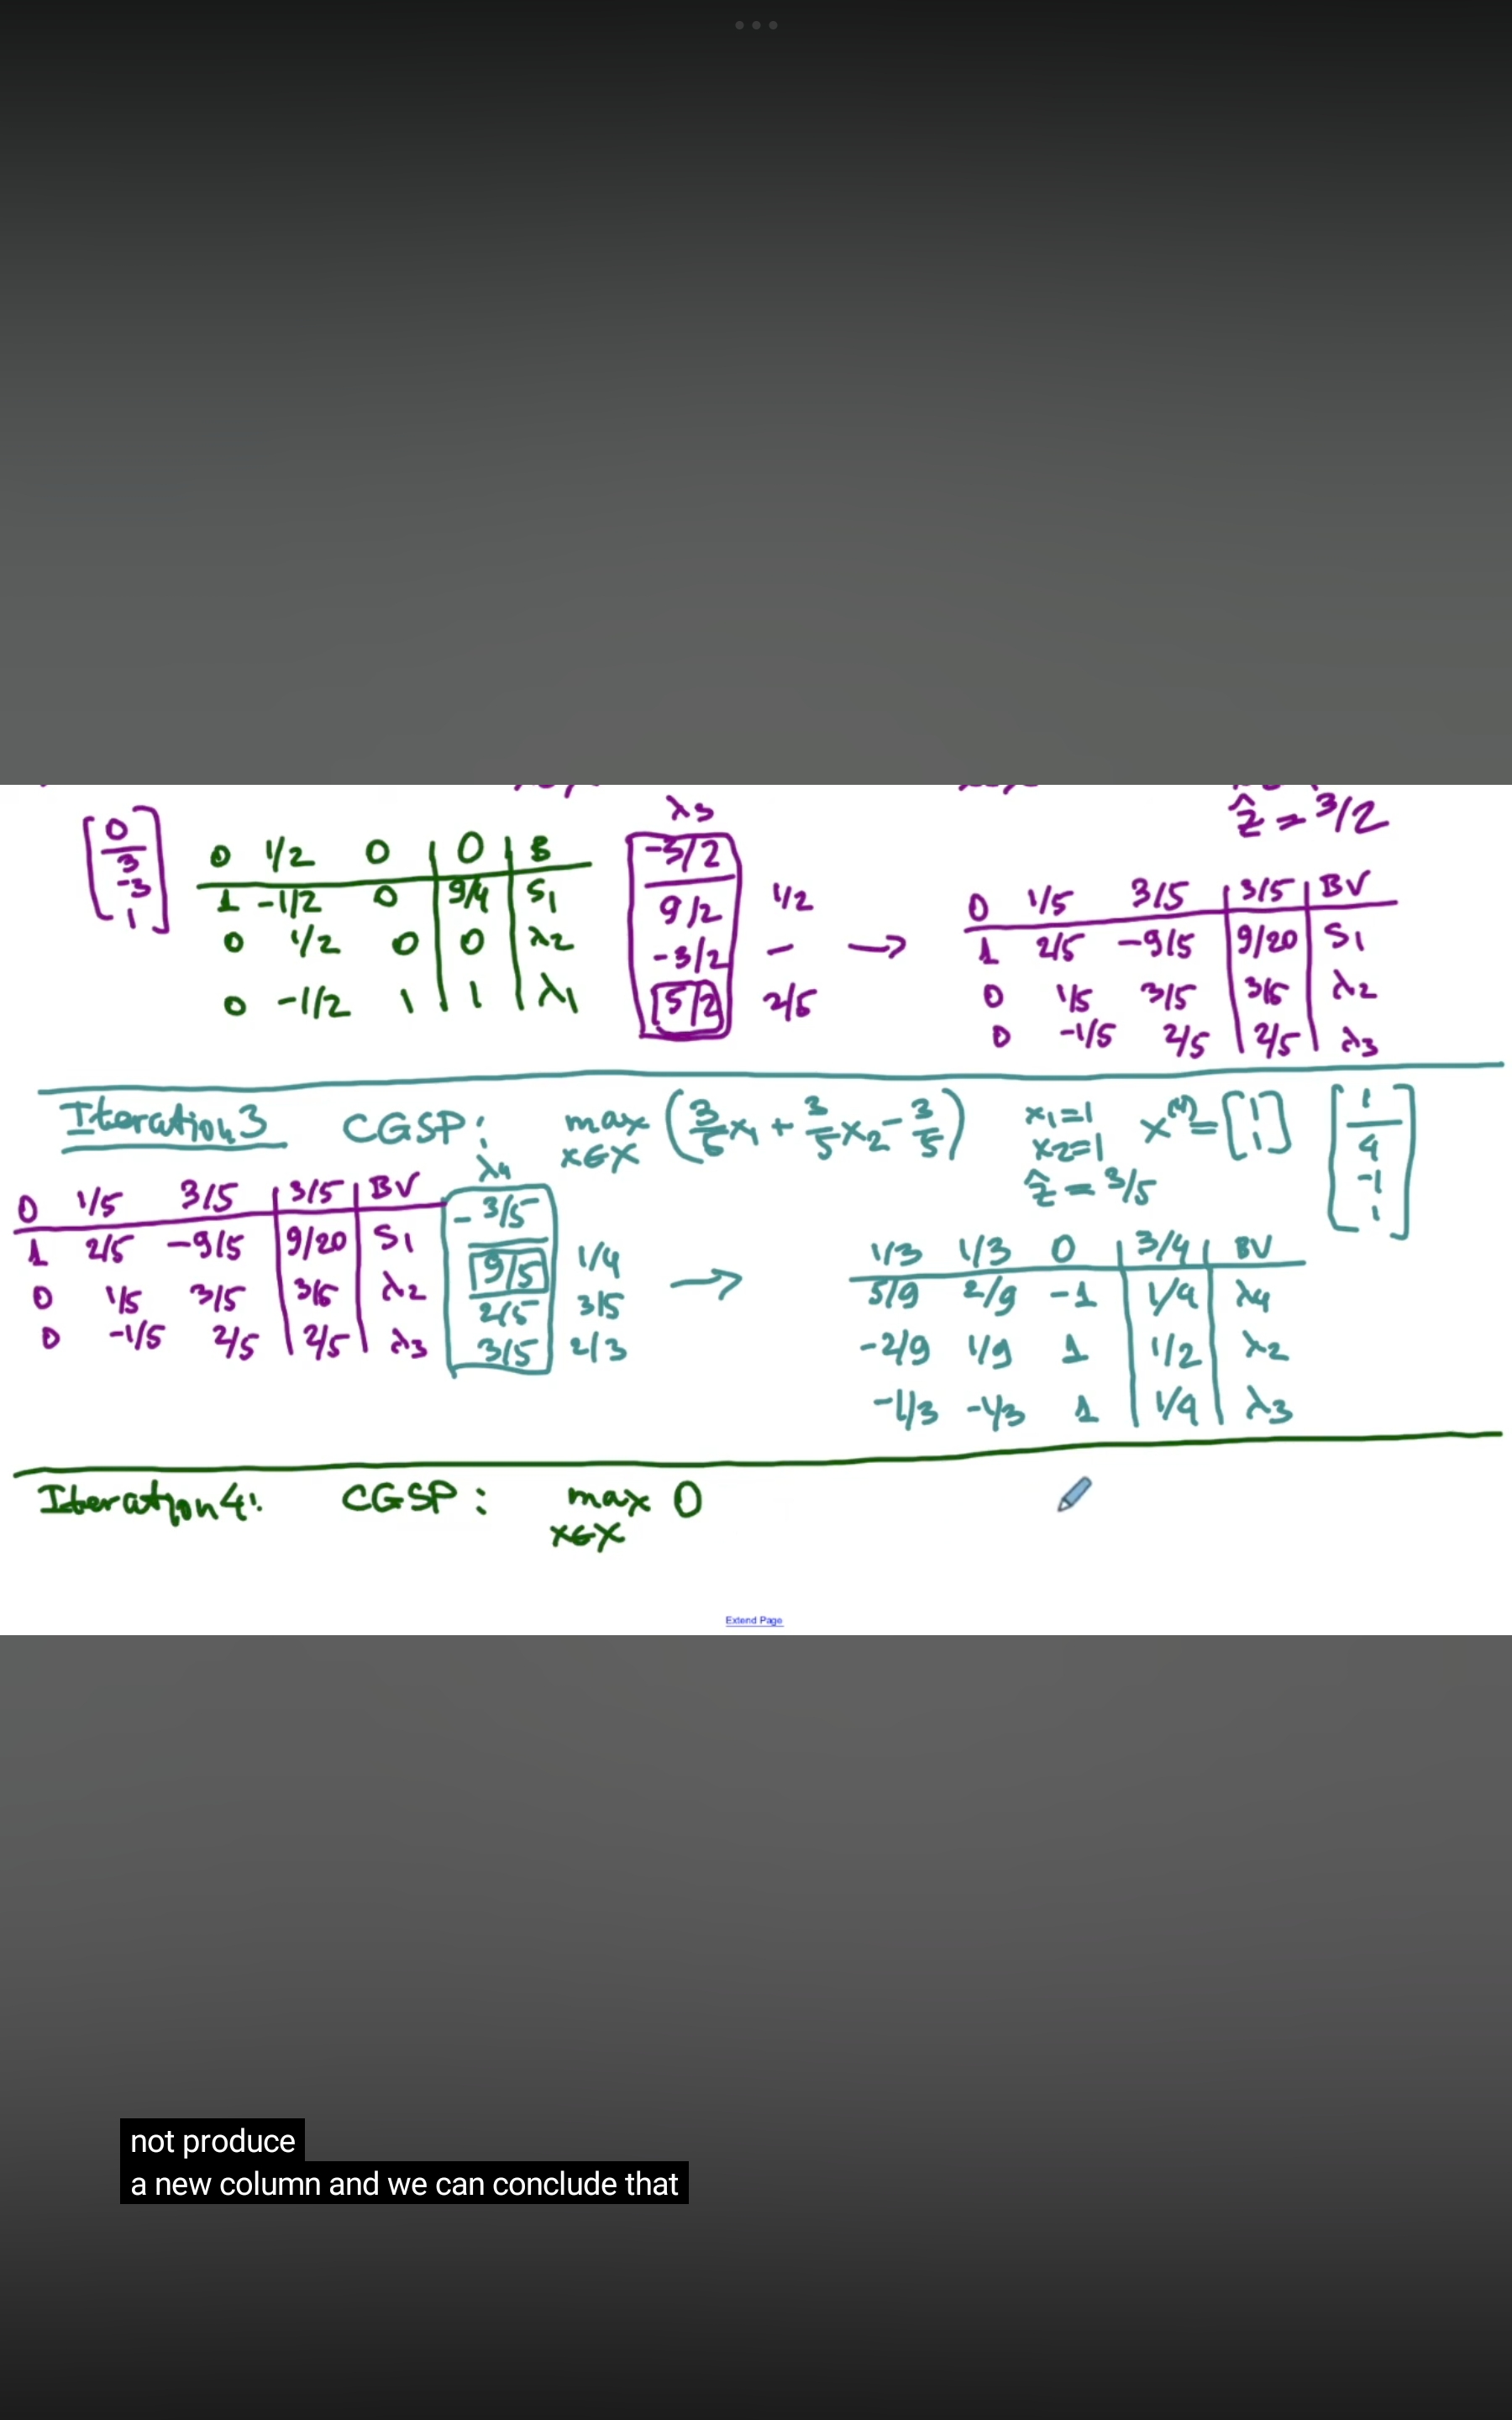 λ3
ẑ = 3/2
0
3
-3
1
0 1/2 0 0 B
1 -1/2 0 9/4 S1
0 1/2 0 0 λ2
0 -1/2 1 1 λ1
-3/2
9/2 1/2
-3/2 –
5/2 2/5
→
0 1/5 3/5 3/5 BV
1 2/5 -9/5 9/20 S1
0 1/5 3/5 3/5 λ2
0 -1/5 2/5 2/5 λ3
Iteration 3 CGSP: max x∈X (3/5 x1 + 3/5 x2 - 3/5)
x1=1
x2=1
ẑ = 3/5
x(4) = [1 1]
1
4
-1
1
λ4
0 1/5 3/5 3/5 BV -3/5
1 2/5 -9/5 9/20 S1 9/5 1/4
0 1/5 3/5 3/5 λ2 2/5 3/5
0 -1/5 2/5 2/5 λ3 3/5 2/3
→
1/3 1/3 0 3/4 BV
5/9 2/9 -1 1/4 λ4
-2/9 1/9 1 1/2 λ2
-1/3 -1/3 1 1/4 λ3
Iteration 4: CGSP: max x∈X 0
Extend Page
not produce
a new column and we can conclude that